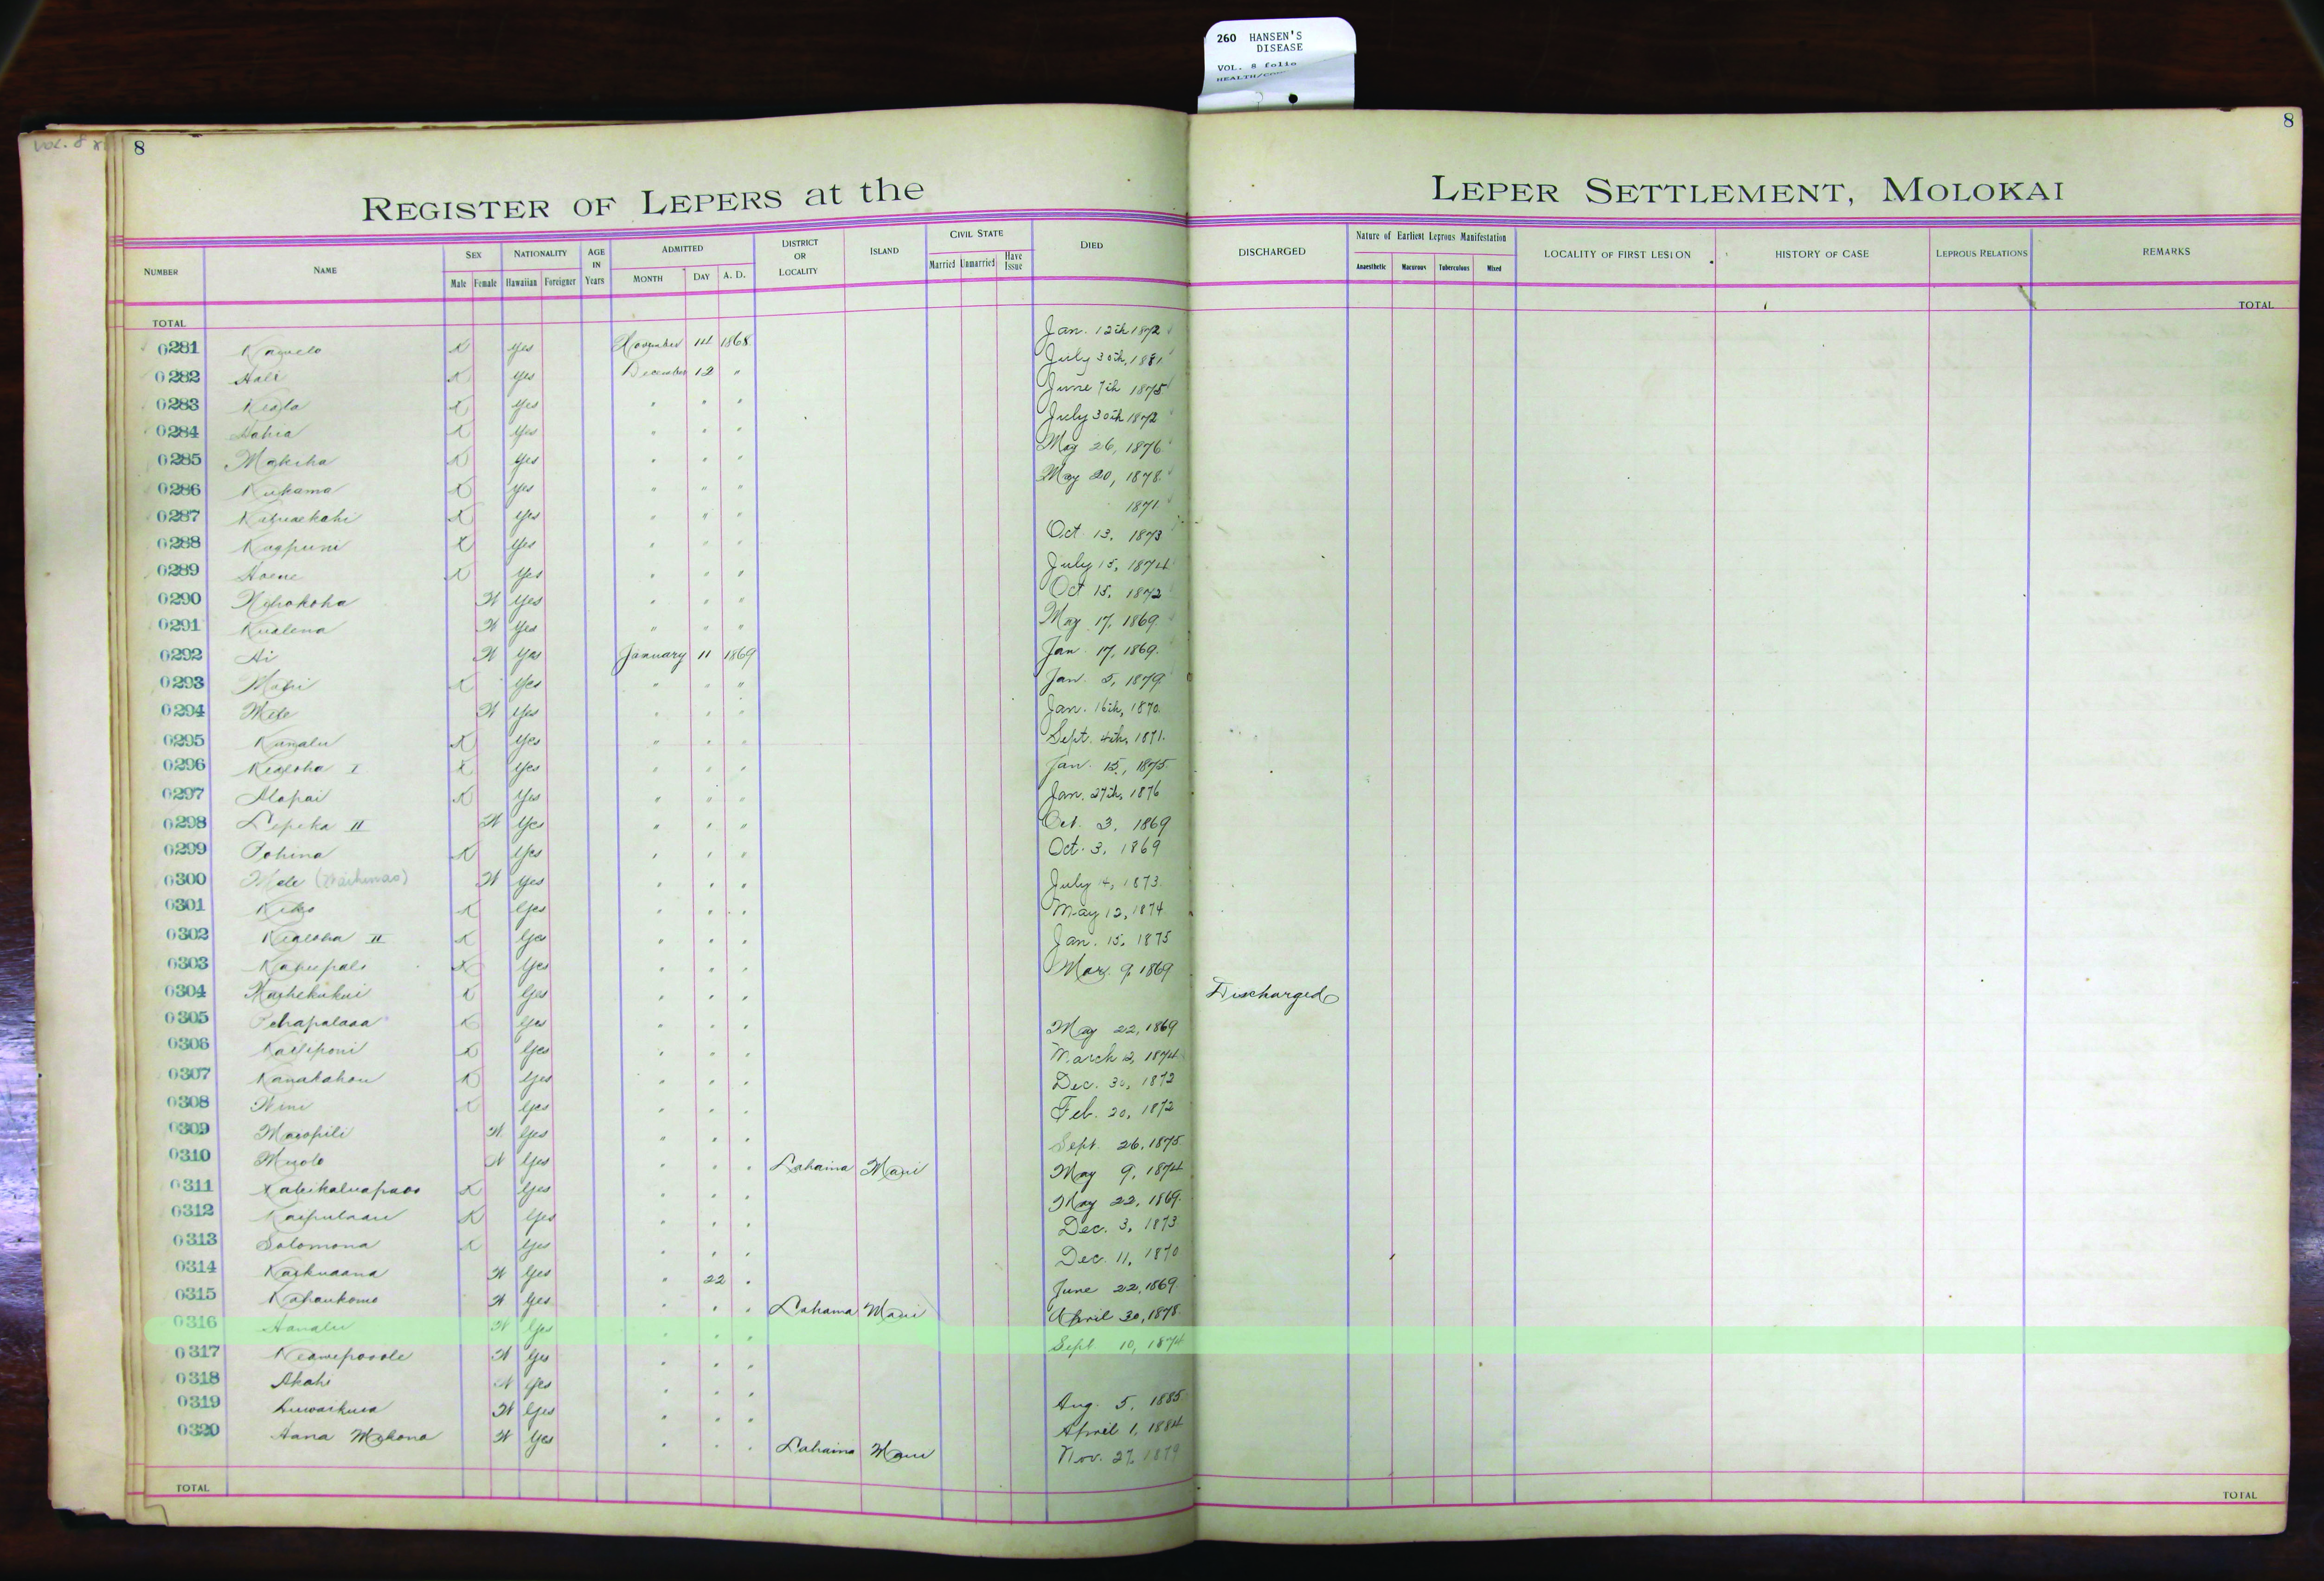 260 HANSEN'S
DISEASE
VOL. 8 folio
VOL. 8
8
8
REGISTER OF LEPERS at the LEPER SETTLEMENT, MOLOKAI
NUMBER NAME SEX Male Female NATIONALITY Hawaiian Foreigner AGE IN Years ADMITTED MONTH DAY A. D. DISTRICT OR LOCALITY ISLAND CIVIL STATE Married Unmarried Have Issue DIED DISCHARGED Nature of Earliest Leprous Manifestation Anaesthetic Macurous Tuberculous Mixed LOCALITY OF FIRST LESION HISTORY OF CASE LEPROUS RELATIONS REMARKS
TOTAL TOTAL
0281 K Yes November 14 1868 Jan. 12th 1872
0282 Hali K Yes December 12 " July 30th, 1881
0283 Keala K Yes " " " June 7th 1875
0284 K Yes " " " July 30th 1872
0285 Makeha K Yes " " " May 26, 1876
0286 Kukama K Yes " " " May 20, 1878
0287 K Yes " " " 1871
0288 Kaapuni K Yes " " " Oct. 13, 1873
0289 Hoene K Yes " " " July 15, 1874
0290 W Yes " " " Oct 15, 1872
0291 Kualena W Yes " " " May 17, 1869
0292 Ai W Yes January 11 1869 Jan. 17, 1869
0293 K Yes " " " Jan. 5, 1879
0294 Mele W Yes " " " Jan. 16th, 1870
0295 K Yes " " " Sept. 4th, 1871
0296 Kealoha I K Yes " " " Jan. 15, 1875
0297 Alapai K Yes " " " Jan. 27th, 1876
0298 Lepeka II W Yes " " " Oct. 3, 1869
0299 Pohina K Yes " " " Oct. 3, 1869
0300 Mele W Yes " " " July 4, 1873
0301 K Yes " " " May 12, 1874
0302 Kealoha II K Yes " " " Jan. 15, 1875
0303 K Yes " " " Mar. 9, 1869
0304 K Yes " " " Discharged
0305 Pehapalaaa K Yes " " " May 22, 1869
0306 Kailiponi K Yes " " " March 12, 1874
0307 Kanakahou K Yes " " " Dec. 30, 1872
0308 Wini K Yes " " " Feb. 20, 1872
0309 Maeopili W Yes " " " Sept. 26, 1875
0310 W Yes " " " Lahaina Maui May 9, 1874
0311 K Yes " " " May 22, 1869
0312 K Yes " " " Dec. 3, 1873
0313 Solomona K Yes " " " Dec. 11, 1870
0314 Kaikuaana W Yes " 22 " June 22, 1869
0315 Kahaukomo W Yes " " " Lahaina Maui April 30, 1878
0316 Aanalu W Yes " " " Sept. 10, 1874
0317 Keawepoole W Yes " " "
0318 Akahi W Yes " " " Aug. 5, 1885
0319 W Yes " " " April 1, 1884
0320 Aana W Yes " " " Lahaina Maui Nov. 27, 1879
TOTAL TOTAL